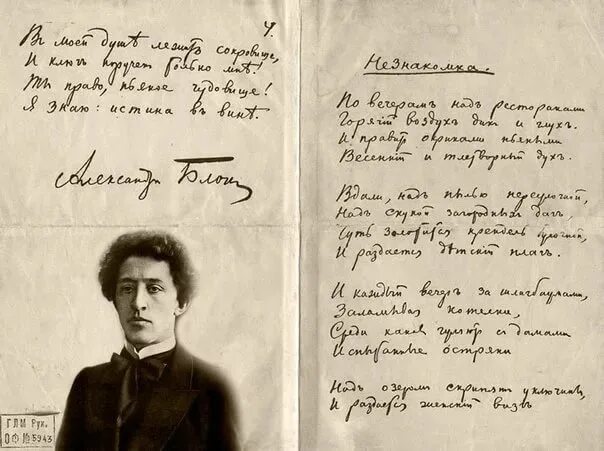 4.
Въ моей душѣ лежитъ сокровище,
И ключъ порученъ только мнѣ!
Ты право, пьяное чудовище!
Я знаю: истина въ винѣ.
Александръ Блокъ
ГЛМ Рук.
ОФ № 5943
Незнакомка.
По вечерамъ надъ ресторанами
Горячій воздухъ дикъ и глухъ.
И правитъ окриками пьяными
Весенній и тлетворный духъ.
Вдали, надъ пылью переулочной,
Надъ скукой загородныхъ дачъ,
Чуть золотится крендель булочной,
И раздается дѣтскій плачъ.
И каждый вечеръ за шлагбаумами,
Заламывая котелки,
Среди канавъ гуляютъ съ дамами
Испытанные остряки
Надъ озеромъ скрипятъ уключины,
И раздается женскій визгъ